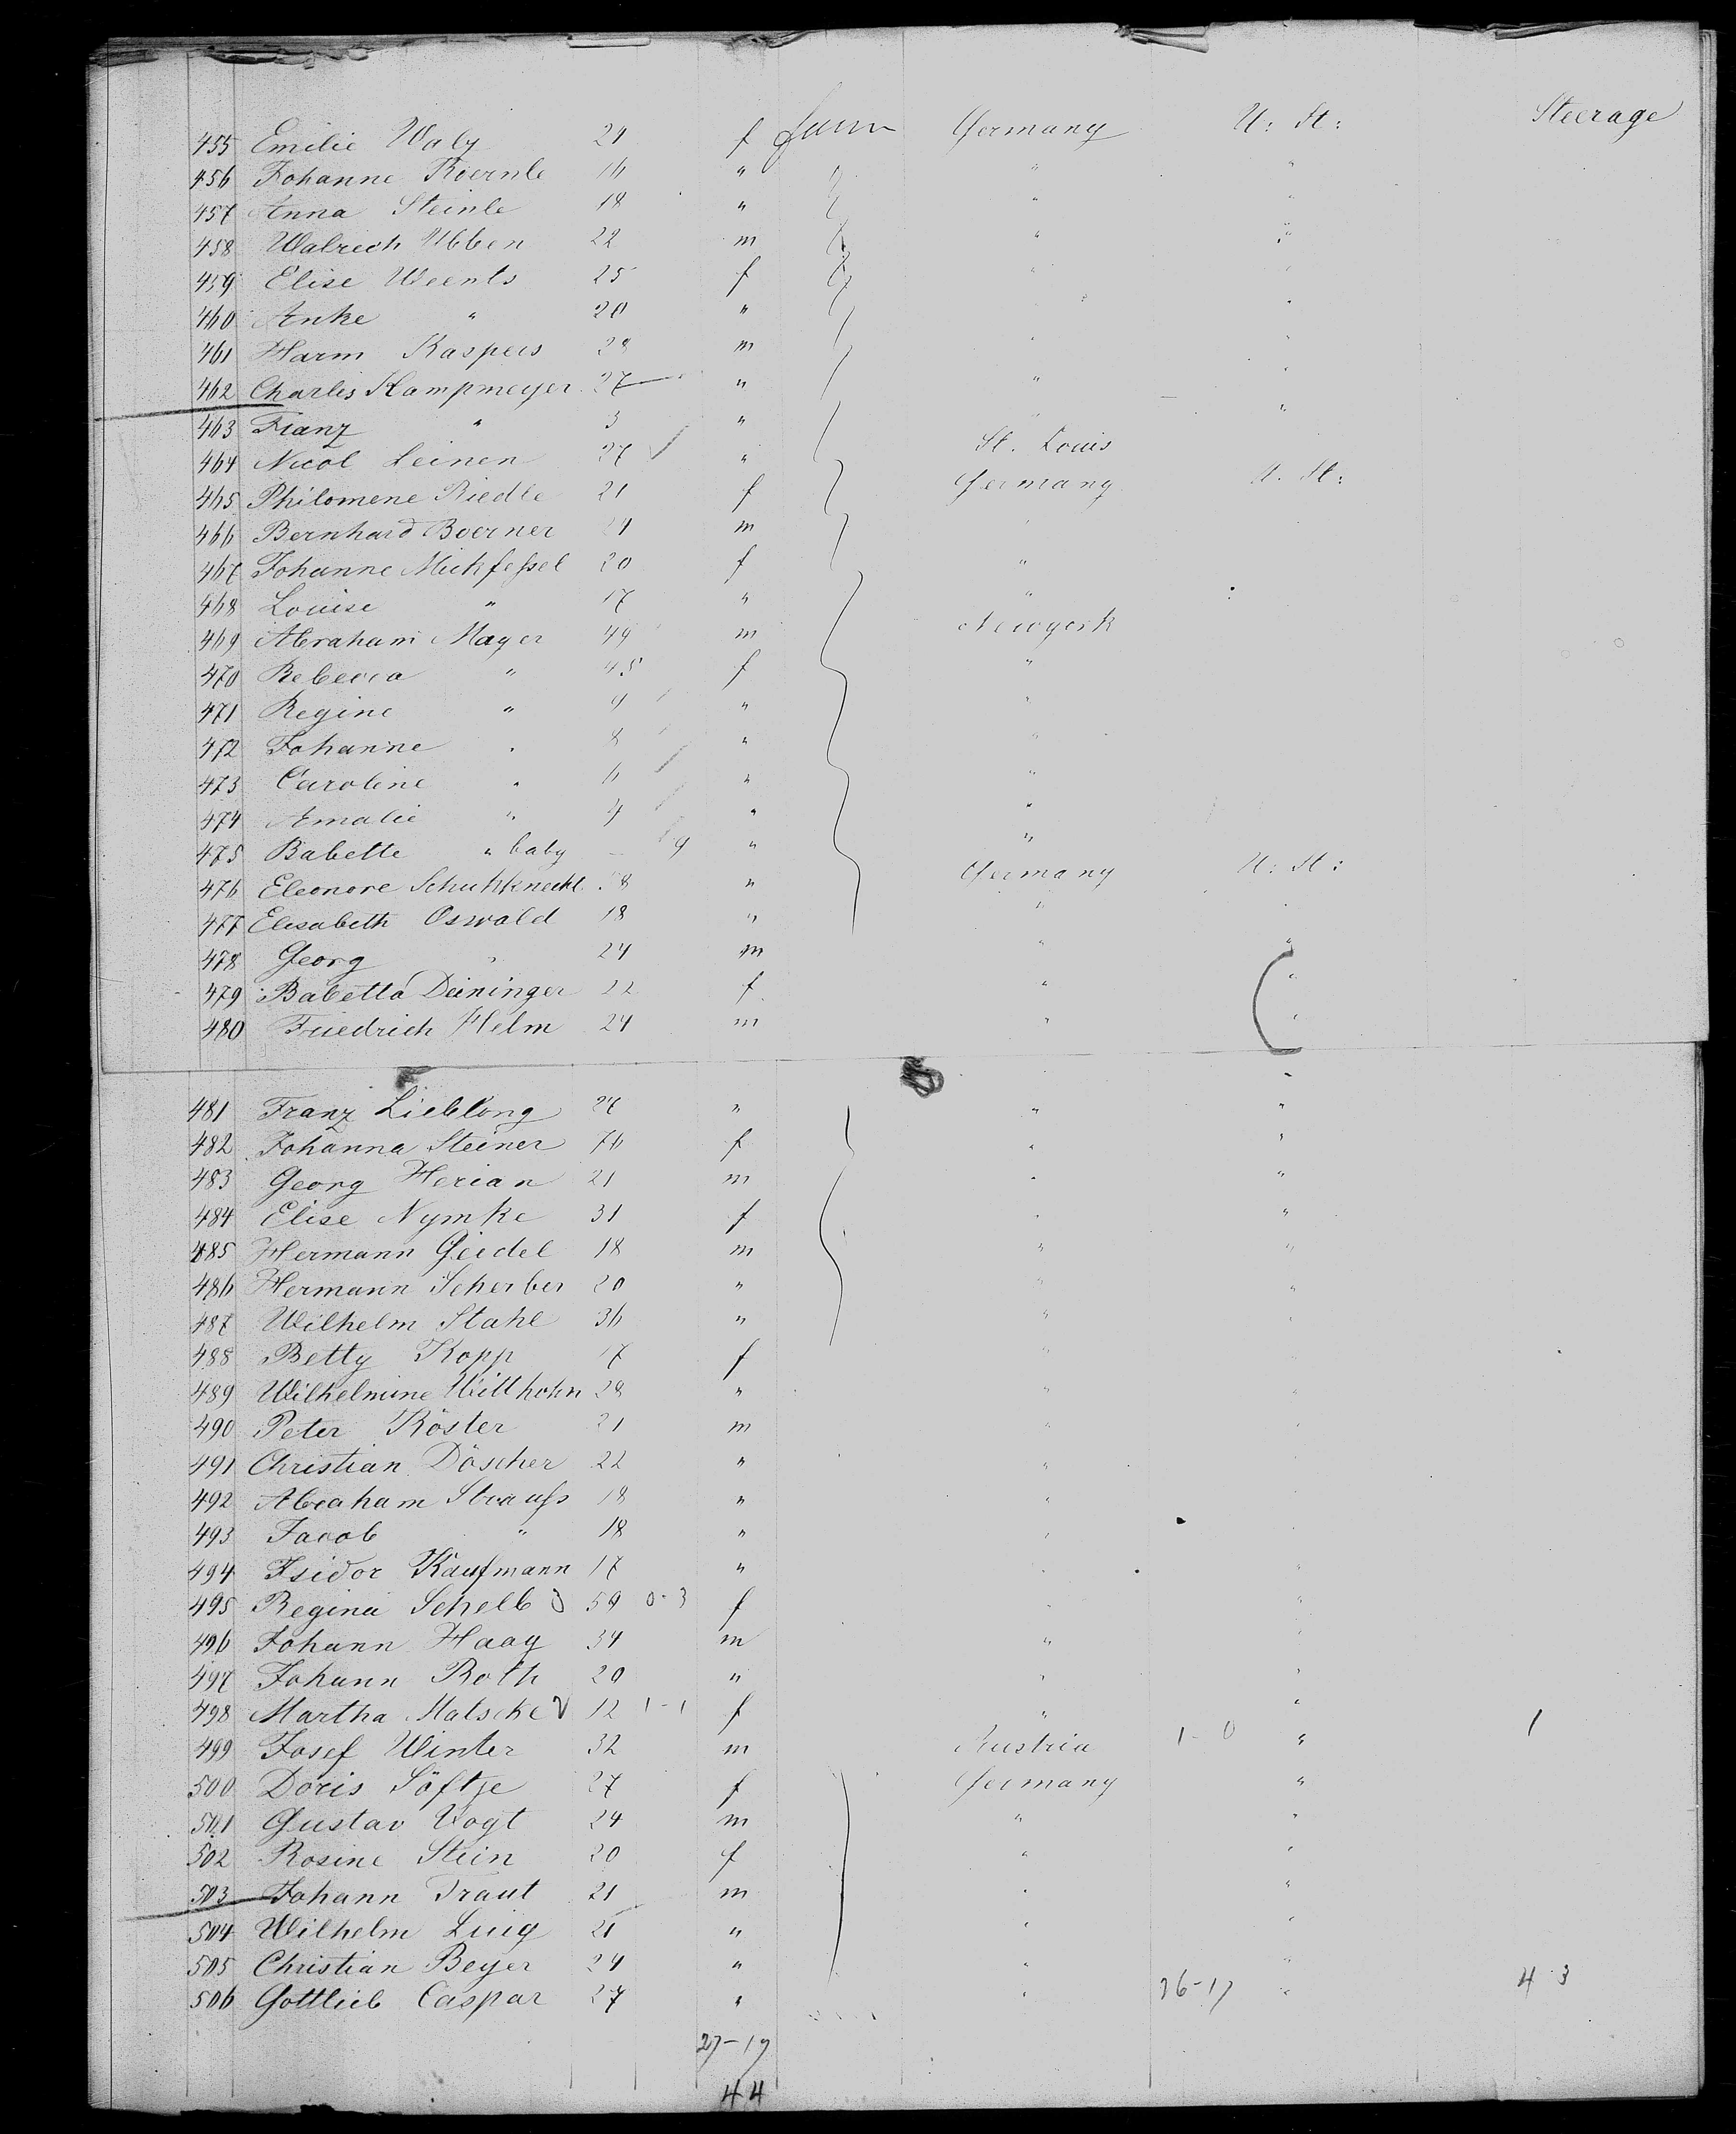 455 Emilie Waly 21 f Germany U: St: Steerage
456 Johanne Koernle 16 " " "
457 Anna Steinle 18 " " "
458 Walrich Ubben 22 m " "
459 Elise Weents 25 f " "
460 Anke " 20 " " "
461 Harm Kaspers 28 m " "
462 Charles Kampmeyer 27 " " "
463 Franz " 3 " " "
464 Nicol Leinen 27 " St. Louis
465 Philomene Riedle 21 f Germany U. St:
466 Bernhard Boerner 21 m "
467 Johanne Mickfeſsel 20 f "
468 Louise " 17 " "
469 Abraham Mayer 49 m Newyork
470 Rebecca " 45 f "
471 Regine " 9 " "
472 Johanne " 8 " "
473 Caroline " 6 " "
474 Amalie " 4 " "
475 Babette " baby - 9 " "
476 Eleonore Schuhknecht 18 " Germany U: St:
477 Elisabeth Oswald 18 " " "
478 Georg " 24 m " "
479 Babetta Deininger 22 f " "
480 Friedrich Helm 24 m " "
481 Franz Lieblong 27 " " "
482 Johanna Steiner 76 f " "
483 Georg Herian 21 m " "
484 Elise Nymke 31 f " "
485 Hermann Geidel 18 m " "
486 Hermann Scherber 20 " " "
487 Wilhelm Stahl 36 " " "
488 Betty Kopp 17 f "
489 Wilhelmine Willhohn 28 " " "
490 Peter Köster 21 m " "
491 Christian Döscher 22 " " "
492 Abraham Strauſs 18 " "
493 Jacob " 18 " "
494 Isidor Kaufmann 17 " " "
495 Regina Schelb 59 0-3 f " "
496 Johann Haag 34 m " "
497 Johann Roth 20 " " "
498 Martha Matscke 12 1-1 f " "
499 Josef Winter 32 m Austria 1-0 " 1
500 Doris Söftje 27 f Germany "
501 Gustav Vogt 24 m " "
502 Rosine Stein 20 f " "
503 Johann Traut 21 m " "
504 Wilhelm Luig 21 " " "
505 Christian Beyer 24 " " "
506 Gottlieb Caspar 27 " " 26-17 " 4 3
27-17
44